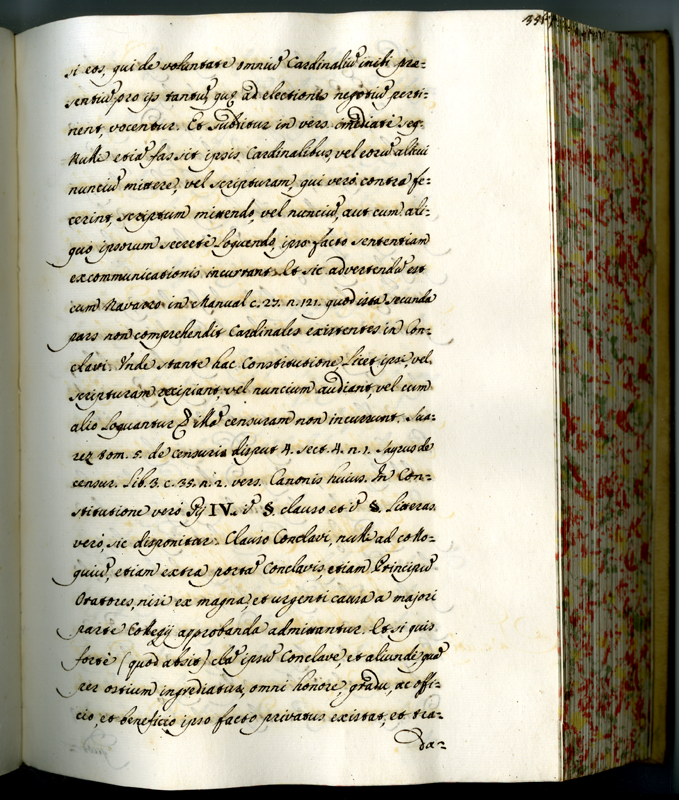 si eos, qui de voluntate omniũ Cardinaliũ inibi præ-
sentiũ, pro ijs tantũ, quæ ad electionis negotiũ perti-
nent, vocentur. Et subditur in vers.
Nulli etiã fas sit ipsis Cardinalibus, vel eorũ alicui
nunciũ mittere, vel scripturam, qui verò contra fe-
cerint, scriptum mittendo, vel nunciũ, aut cum ali-
quo ipsorum secretè loquendo, ipso facto sententiam
excommunicationis incurrant. Et sic advertendũ est
cum Navarro in Manual c. 27. n. 121. quod ista secunda
pars non comprehendit Cardinales existentes in Con-
clavi. Unde stante hac Constitutione, licet ipsi, vel
scripturam recipiant, vel nuncium audiant, vel cum
alio loquantur censuram non incurrunt. Sua-
rez tom. 5. de censuris disput. 4. sect. 4. n. 1. Sayrus de
censur. Lib. 3. c. 35. n. 2. vers. Canonis huius. In Con-
stitutione verò Pij IV. ỹ § clauso et ỹ § Literas
verò, sic disponitur. Clauso Conclavi, nulli ad collo-
quiũ, etiam extra portã Conclavis, etiam Principũ
Oratores, nisi ex magna, et urgenti causa a majori
parte Collegij approbanda admittantur. Et si quis
fortè (quod absit) clã ipsũ Conclave et aliunde quã
per ostium ingrediatur, omni honore gradu, ac offi-
cio, et beneficio ipso facto privatus existat, et tra-
da-